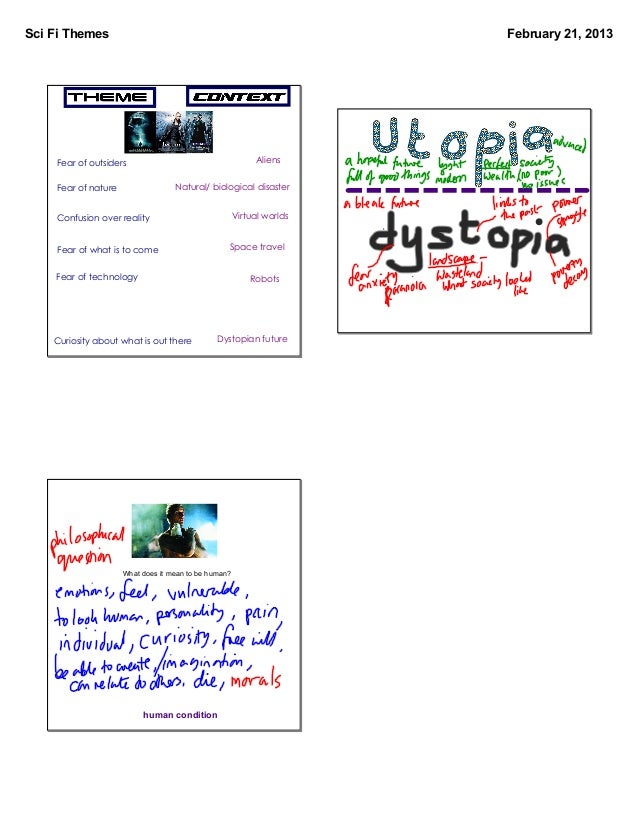 Sci Fi Themes February 21, 2013
THEME CONTEXT
Fear of outsiders Aliens
Fear of nature Natural/ biological disaster
Confusion over reality Virtual worlds
Fear of what is to come Space travel
Fear of technology Robots
Curiosity about what is out there Dystopian future
Utopia
advanced
a hopeful future bright Perfect society
full of good things modern wealth (no poor)
no issues
a bleak future links to power
the past
dystopia
landscape -
fear wasteland poverty
anxiety what society looked decay
paranoia like
philosophical
question
What does it mean to be human?
emotions, feel, vulnerable,
to look human, personality, pain,
individual, curiosity, free will,
be able to create/imagination,
can relate to others, die, morals
human condition